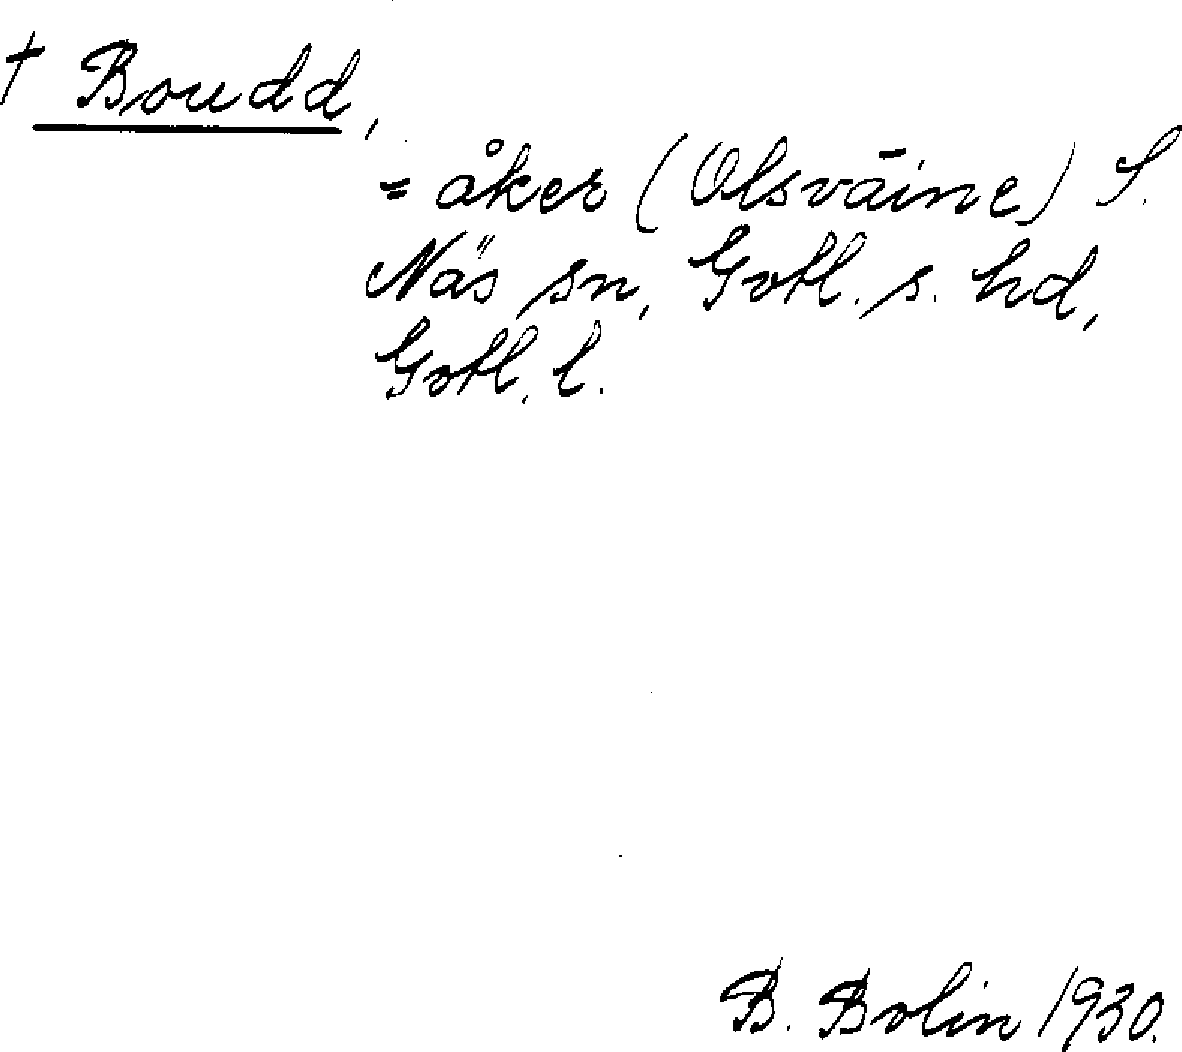 † Boudd,
= åker (Olsväine) S.
Näs sn, Gotl. s. hd,
Gotl. l.
B. Bolin 1930.